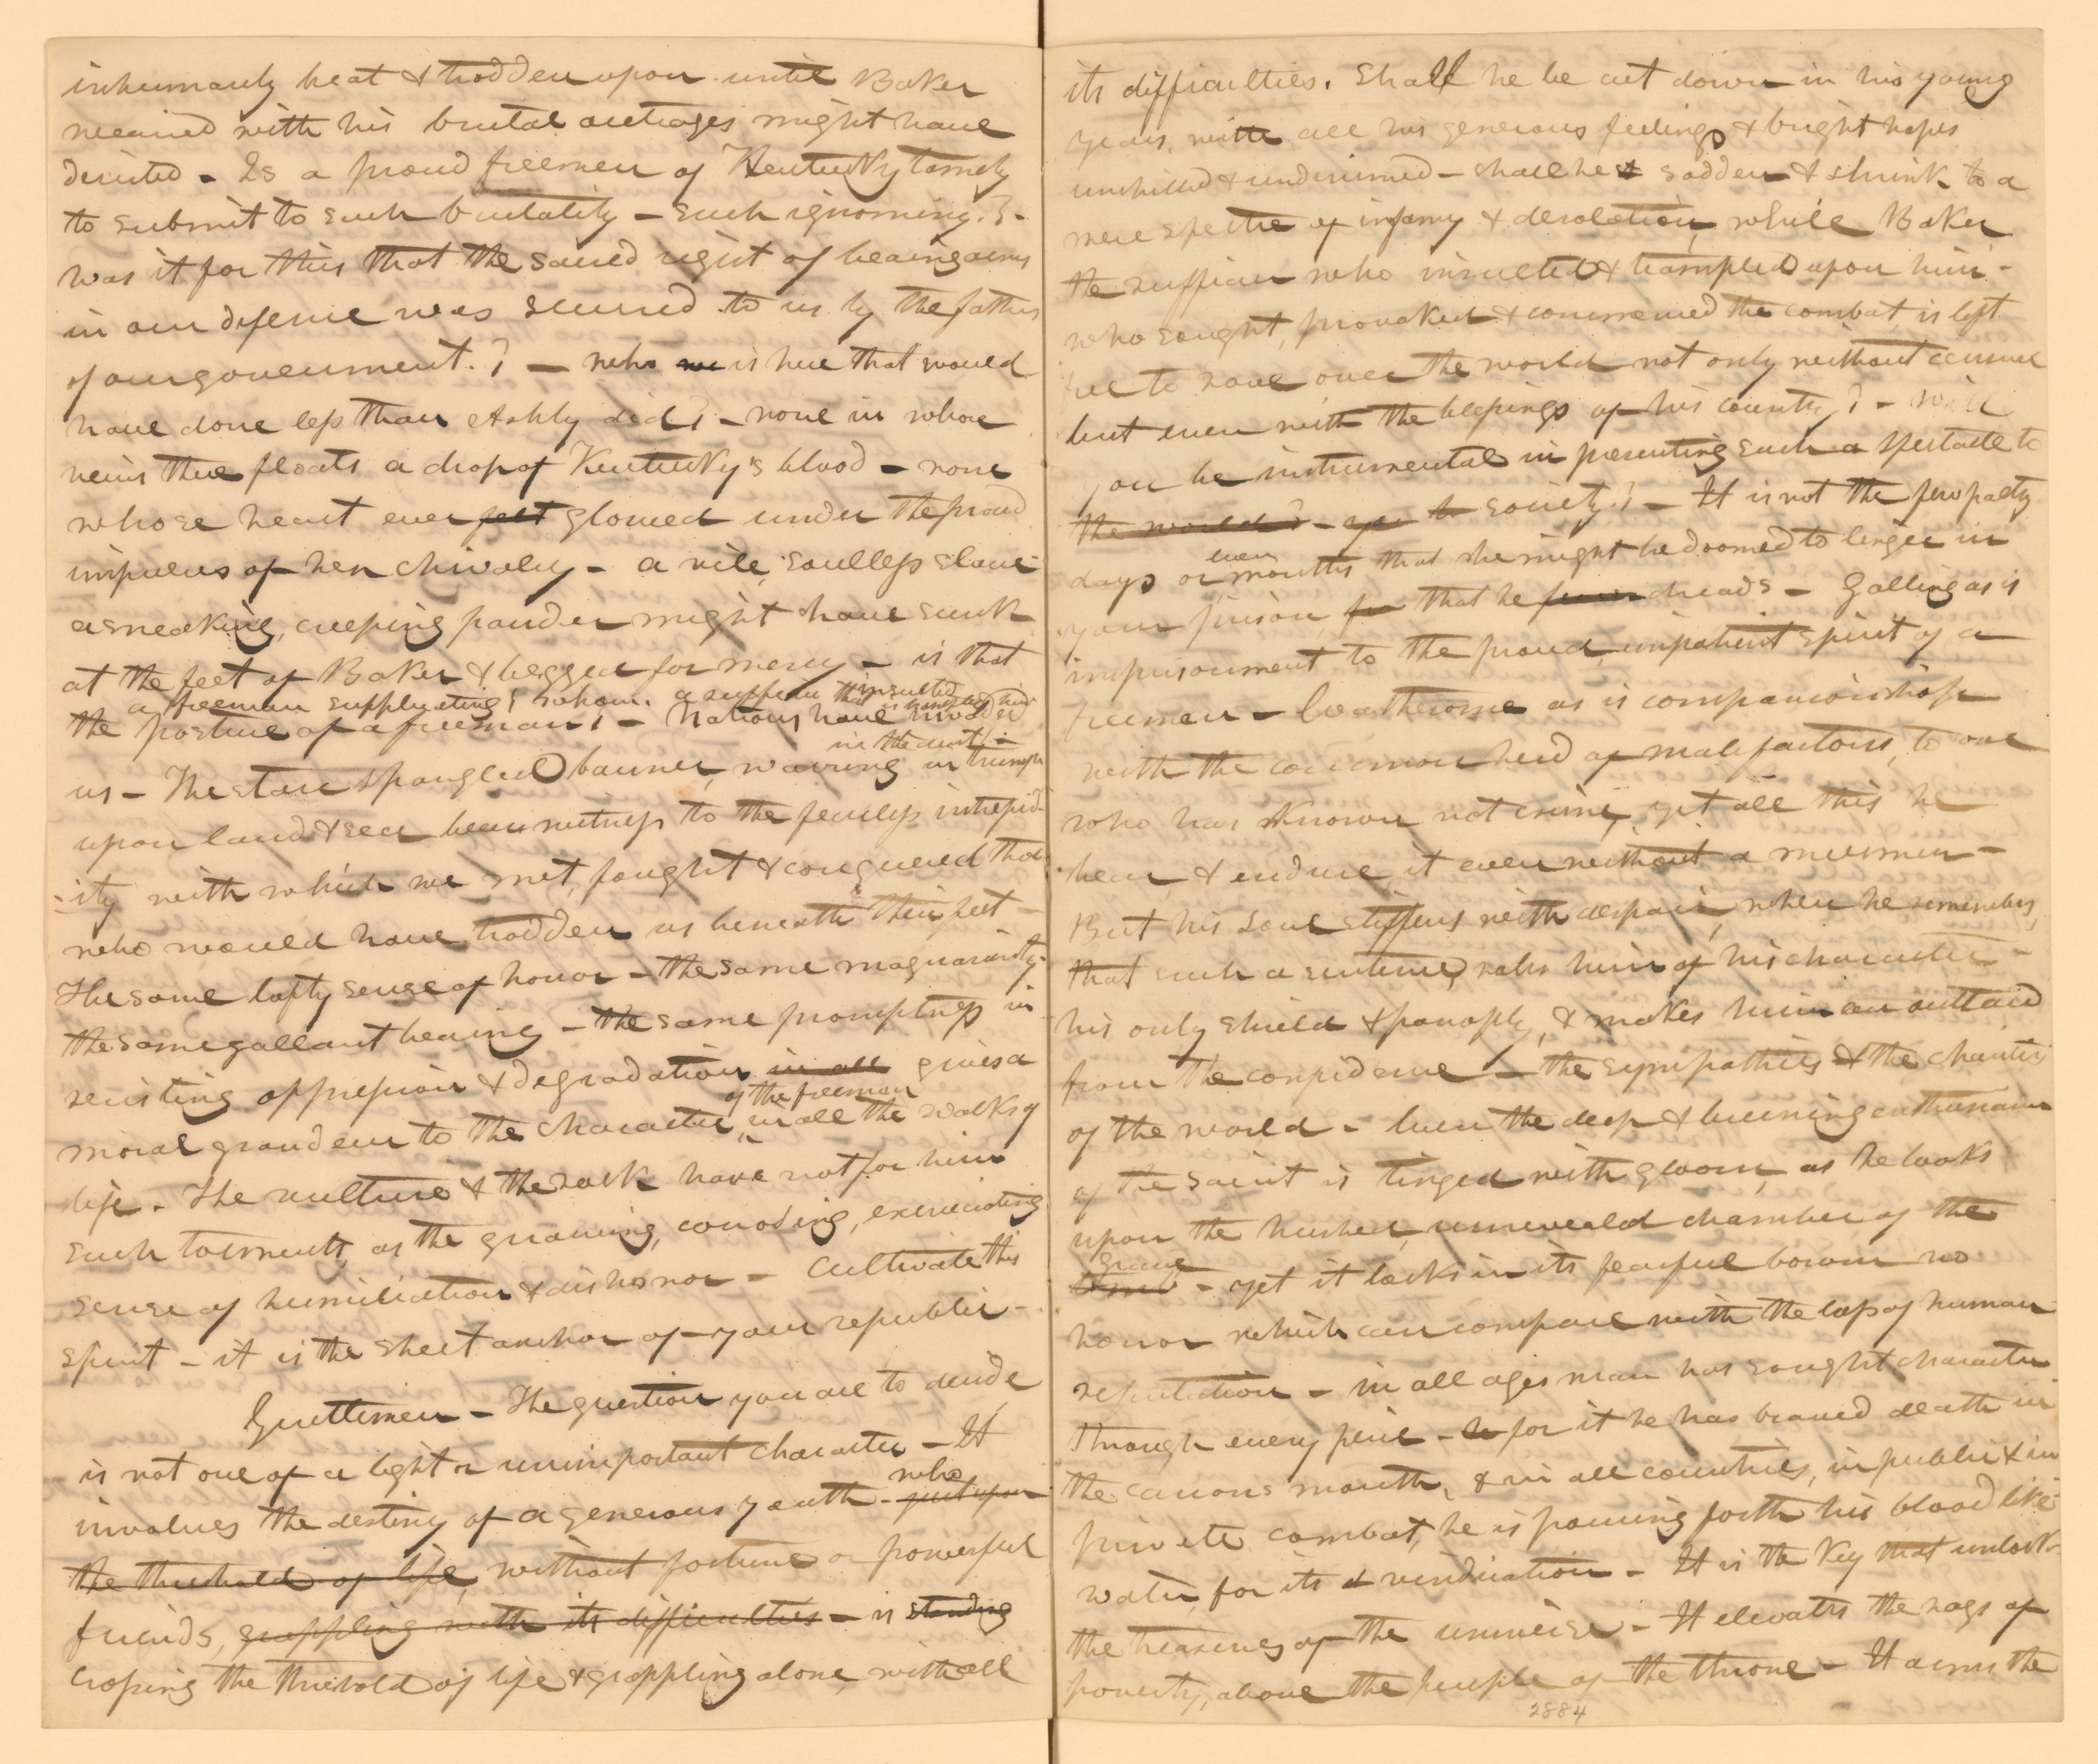 inhumanly beat & trodden upon until Baker
wearied with his brutal outrages might have
desisted - Is a proud freeman of Kentucky tamely
to submit to such brutality - such ignominy.? -
was it for this that the sacred right of bearing arms
in our defence was secured to us by the fathers
of our government.? - who is here that would
have done less than Ashby did? - none in whose
veins there floats a drop of Kentucky's blood - none
whose heart ever felt glowed under the proud
impulses of her chivalry - a vile, soulless slave
a sneaking, creeping pander might have sunk
at the feet of Baker & begged for mercy - is that
a freeman supplicating? whom. a ruffian that insulted & trampled him
the posture of a freeman? - Nations have invaded
in the dust? -
us - The star spangled banner, waving in triumph
upon land & sea bears witness to the fearless intrepid-
-ity with which we met, fought & conquered those
who would have trodden us beneath their feet -
The same lofty sense of honor - the same magnanimity -
the same gallant bearing - the same promptness in
resisting oppression & degradation in all gives a
of the freeman
moral grandeur to the character, in all the walks of
life. The vulture & the rack have not for him
such torments, as the gnawing, corroding, excruciating
sense of humiliation & dishonor - Cultivate this
spirit - it is the sheet anchor of your republic -
Gentlemen - The question you are to decide
is not one of a light or unimportant character - It
who
involves the destiny of a generous youth - just upon
the threshold of life, without fortune or powerful
friends, grappling with its difficulties - is standing
crossing the threshold of life & grappling alone, with all
its difficulties. Shall he be cut down in his young
years, with all his generous feelings & bright hopes
unchilled & undimmed - shall he sadden & shrink to a
mere spectre of infamy & desolation, while Baker
the ruffian who insulted & trampled upon him -
who sought, provoked & commenced the combat, is left
free to rove over the world not only without censure
but even with the blessings of his country? - Will
you be instrumental in presenting such a spectacle to
the world? - society.? - It is not the few paltry
even
days or months that he might be doomed to linger in
your prison, that he dreads - Galling as is
imprisonment to the proud, impatient spirit of a
freeman - loathsome as is companionship
with the common herd of malefactors, to one
who has known not crime, yet all this he
bear, & endure it even without a murmur -
But his soul stiffens with despair, when he remembers,
that such a sentence, robs him of his character -
his only shield & panoply, & makes him an outlaw
from the confidence - the sympathies & the charities
of the world - Even the deep & burning enthusiasm
of the saint is tinged with gloom, as he looks
upon the hushed, unrevealed chamber of the
grave
tomb - yet it locks in its fearful bosom no
horror which can compare with the loss of human
reputation - in all ages man has sought character
through every peril - for it he has braved death in
the canons mouth, & in all countries, in public & in
private combat, he is pouring forth his blood like
water, for its vindication - It is the key that unlocks
the treasures of the universe - It elevates the rags of
poverty, above the purple of the throne - It arms the
2884